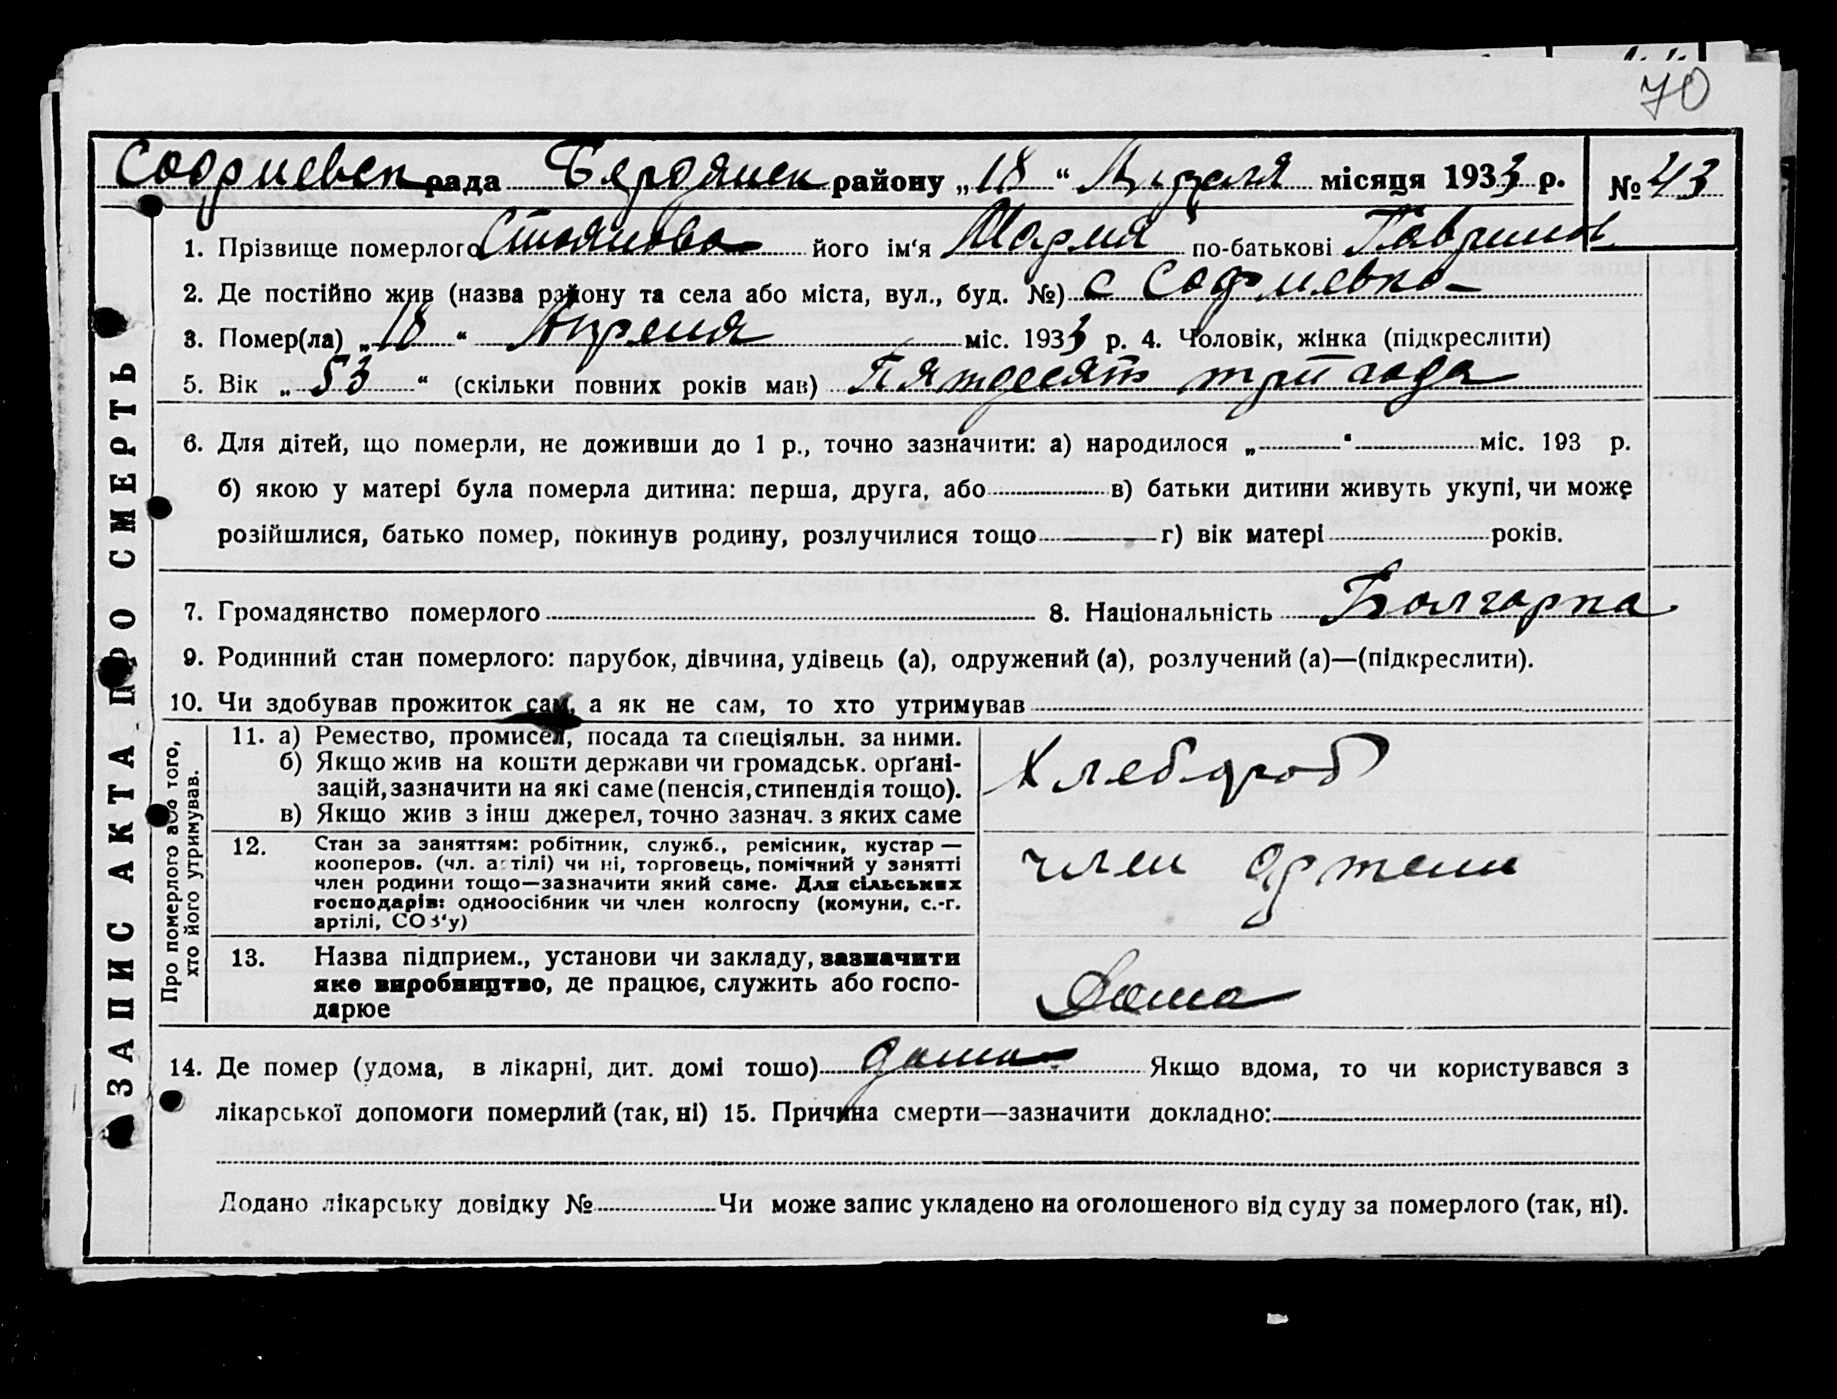 70
Софиевск рада Бердянск району „18“ Апреля місяця 1933 р. № 43
1. Прізвище померлого Стоянова його ім‘я Мария по-батькові Гаврилов
2. Де постійно жив (назва району та села або міста, вул., буд. №) с Софиевка
3. Помер(ла) „18“ Апреля міс. 1933 р. 4. Чоловік, жінка (підкреслити)
5. Вік „53“ (скільки повних років мав) Пятдесят три года
6. Для дітей, що померли, не доживши до 1 р., точно зазначити: а) народилося „ “ міс. 193 р.
б) якою у матері була померла дитина: перша, друга, або в) батьки дитини живуть укупі, чи може
розійшлися, батько помер, покинув родину, розлучилися тощо г) вік матері років.
7. Громадянство померлого 8. Національність Болгарка
9. Родинний стан померлого: парубок, дівчина, удівець (а), одружений (а), розлучений (а)—(підкреслити).
10. Чи здобував прожиток сам, а як не сам, то хто утримував
ЗАПИС АКТА ПРО СМЕРТЬ
Про померлого або того,
хто його утримував.
11. а) Ремество, промисел, посада та спеціяльн. за ними.
б) Якщо жив на кошти держави чи громадськ. органі-
зацій, зазначити на які саме (пенсія, стипендія тощо).
в) Якщо жив з інш джерел, точно зазнач. з яких саме
Хлебороб
12. Стан за заняттям: робітник, служб., ремісник, кустар —
кооперов. (чл. артілі) чи ні, торговець, помічний у занятті
член родини тощо—зазначити який саме. Для сільських
господарів: одноосібник чи член колгоспу (комуни, с.-г.
артілі, СОЗ‘у)
член артели
13. Назва підприєм., установи чи закладу, зазначити
яке виробництво, де працює, служить або госпо-
дарює
Дома
14. Де помер (удома, в лікарні, дит. домі тошо) дома Якщо вдома, то чи користувався з
лікарської допомоги померлий (так, ні) 15. Причина смерти—зазначити докладно:
Додано лікарську довідку № Чи може запис укладено на оголошеного від суду за померлого (так, ні).